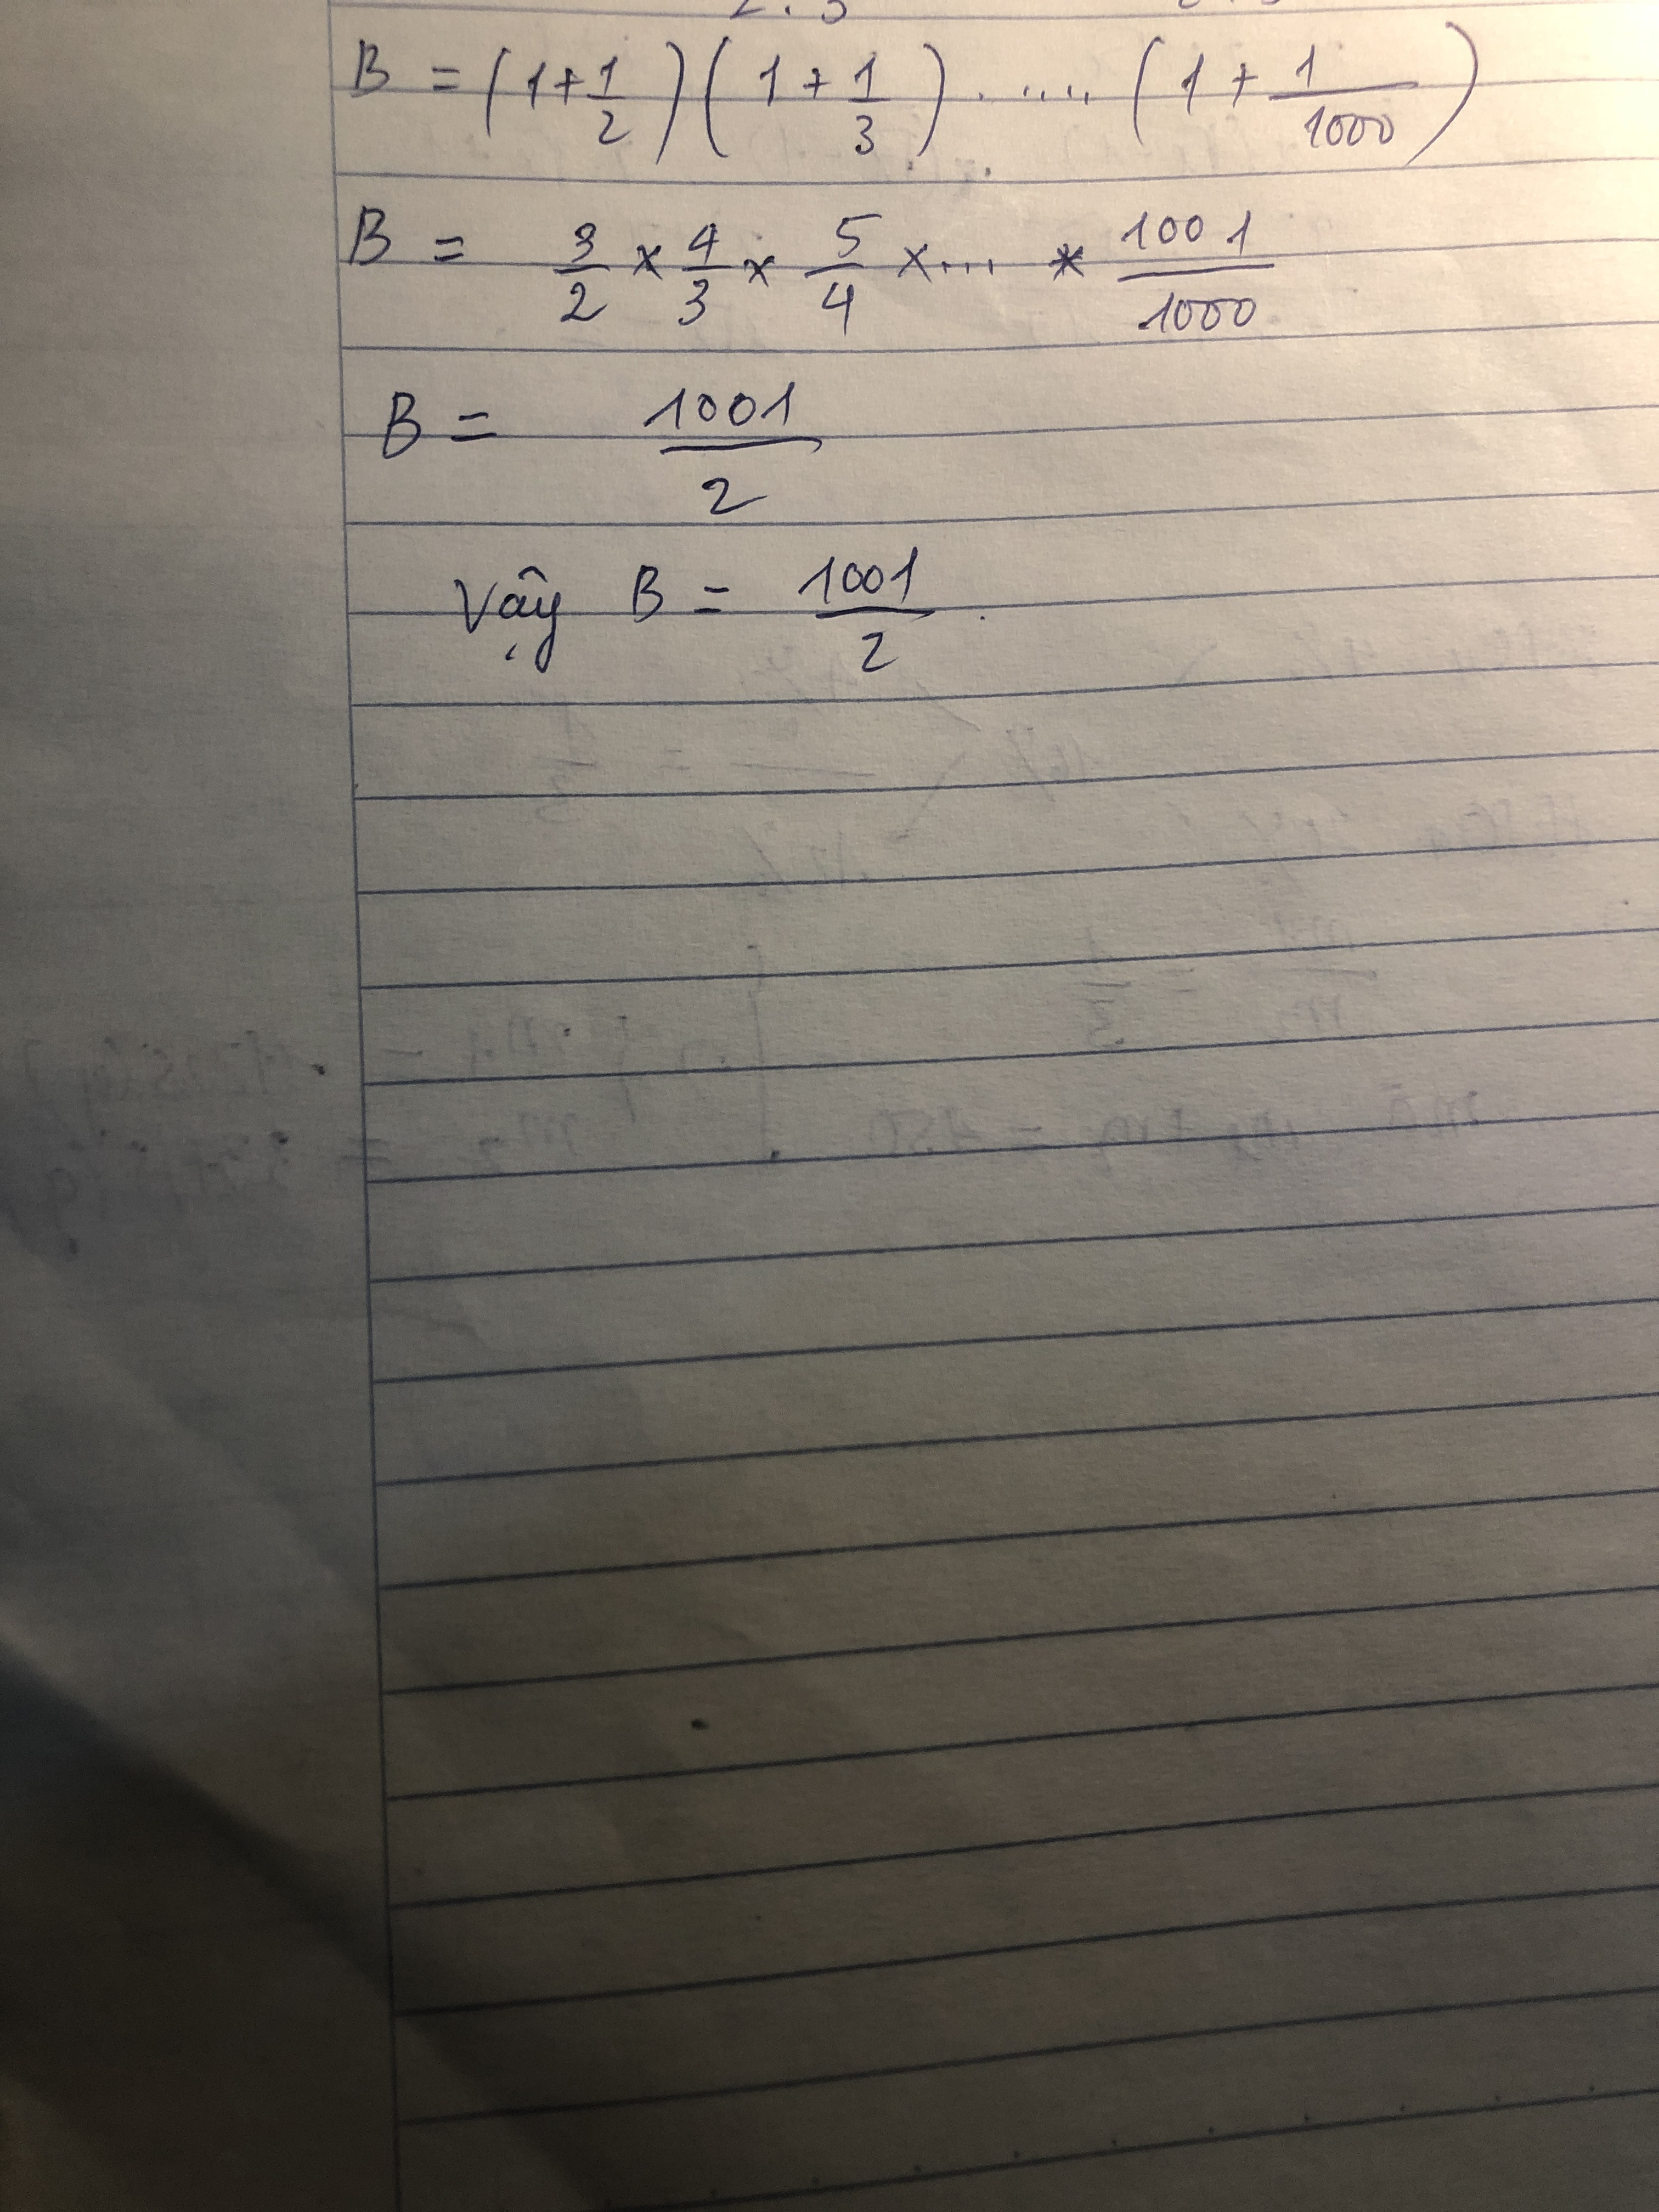 B = (1 + 1/2)(1 + 1/3) ..... (1 + 1/1000)
B = 3/2 × 4/3 × 5/4 × ... * 1001/1000
B = 1001/2
Vậy B = 1001/2.